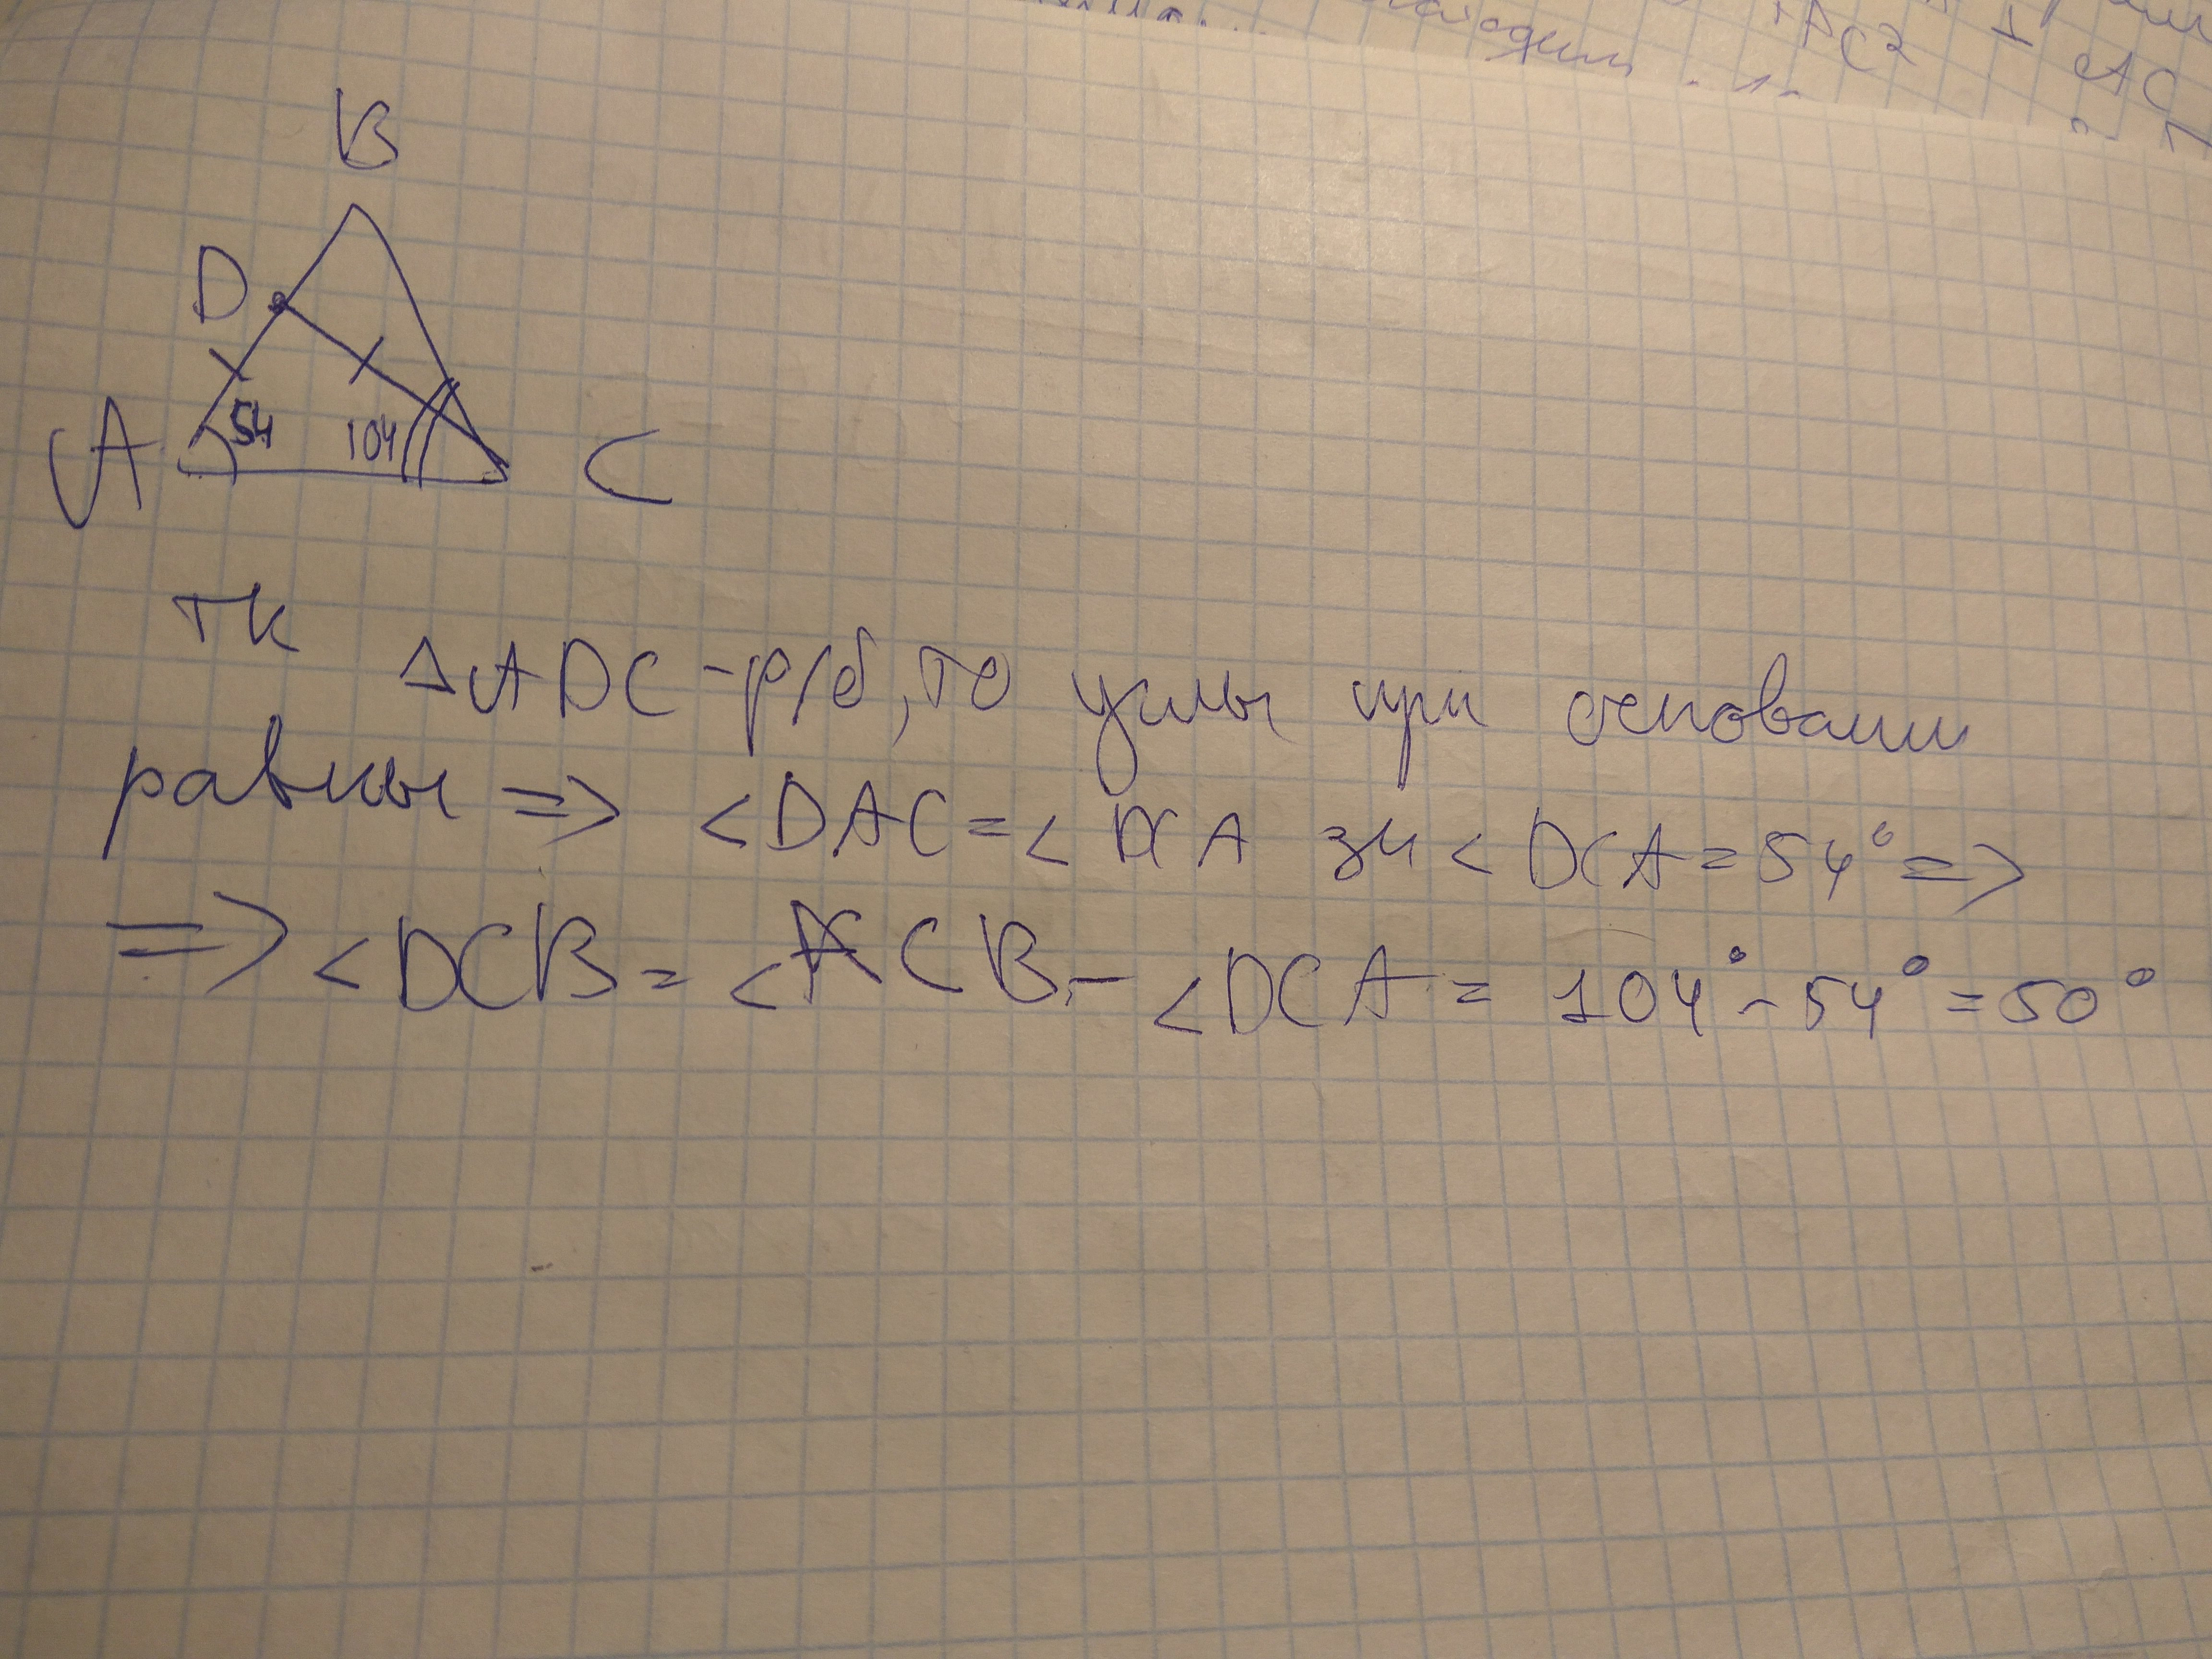 находим
AC2
AC
B
D
54
104
A
C
тк
ΔADC-р/б, то углы при основании
равны => <DAC=< DCA зн < DCA=54° =>
=> <DCB = <ACB - <DCA = 104° - 54° = 50°